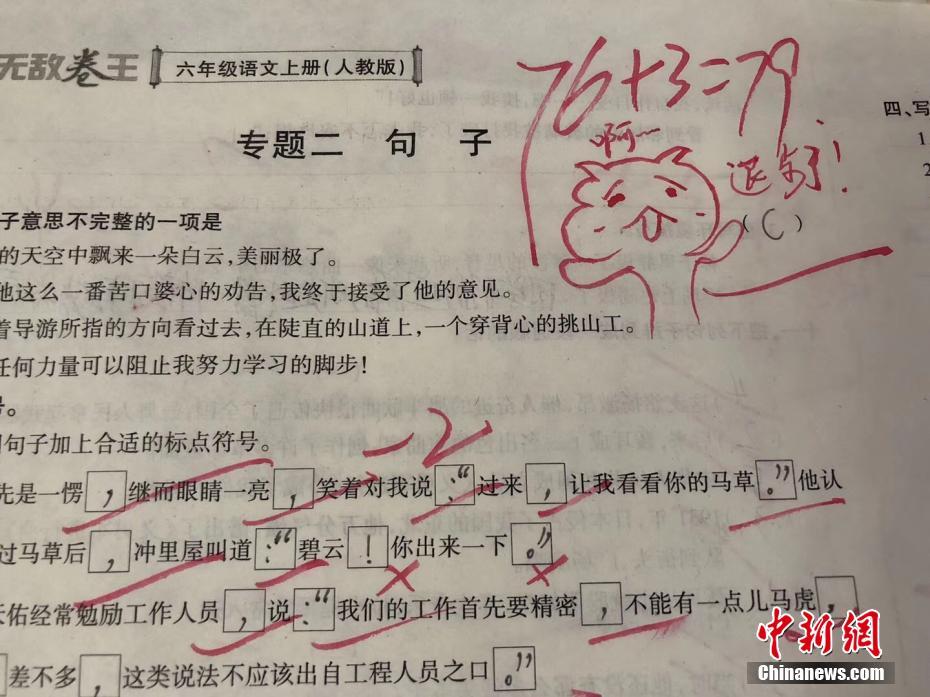 无敌卷王 六年级语文上册(人教版)
76+3=79
专题二 句 子
啊
退步了!
四、写
1
2
子意思不完整的一项是 (C)
的天空中飘来一朵白云,美丽极了。
他这么一番苦口婆心的劝告,我终于接受了他的意见。
着导游所指的方向看过去,在陡直的山道上,一个穿背心的挑山工。
任何力量可以阻止我努力学习的脚步!
号。
句子加上合适的标点符号。
-2
先是一愣,继而眼睛一亮,笑着对我说:“过来,让我看看你的马草。”他认
过马草后,冲里屋叫道:“碧云!你出来一下。”
天佑经常勉励工作人员,说:“我们的工作首先要精密,不能有一点儿马虎,
差不多,这类说法不应该出自工程人员之口。”
中新网
Chinanews.com